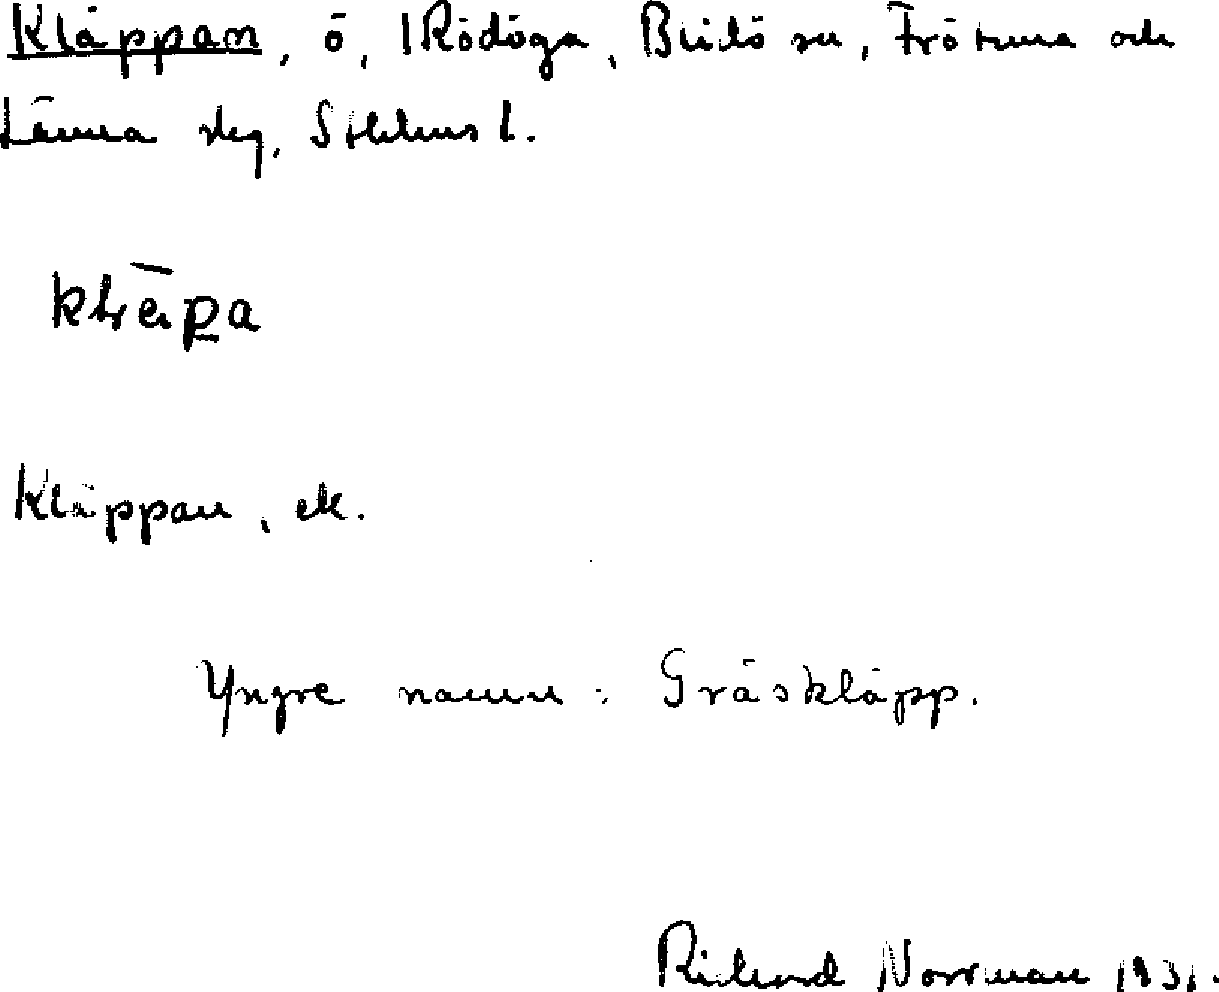 Kläppan, ö, I Rödöga, Blidö sn, Frötuna och
Länna slg, Sthlms l.
Kläppan, ek.
Yngre namn: Gräskläpp.
Rikard Norrman 1931.